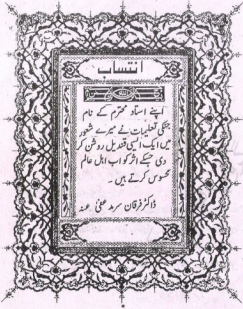 انتساب
اپنے استاد محترم کے نام
جنکی تعلیمات نے میرے شعور
میں ایک ایسی قندیل روشن کر
دی جسکے اثر کو اب اہل عالم
محسوس کرتے ہیں ۔
ڈاکٹر فرقان سرمد عفی عنہ